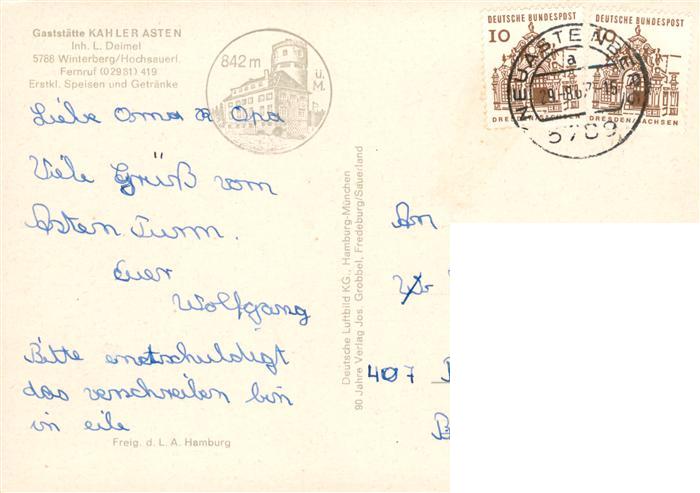 Gaststätte KAHLER ASTEN
Inh. L. Deimel
5788 Winterberg/Hochsauerl.
Fernruf (02981) 419
Erstkl. Speisen und Getränke
842 m
ü. M.
DEUTSCHE BUNDESPOST
10
DRESDEN/SACHSEN
DEUTSCHE BUNDESPOST
10
DRESDEN/SACHSEN
NEUASTENBERG
a
5789
Liebe Oma & Opa
Viele Grüß vom
Asten Turm.
Euer
Wolfgang
Bitte enetschuldigt
das verschreiben bin
in eile
Freig. d. L. A. Hamburg
Deutsche Luftbild KG., Hamburg-München
90 Jahre Verlag Jos. Grobbel, Fredeburg/Sauerland
An
407